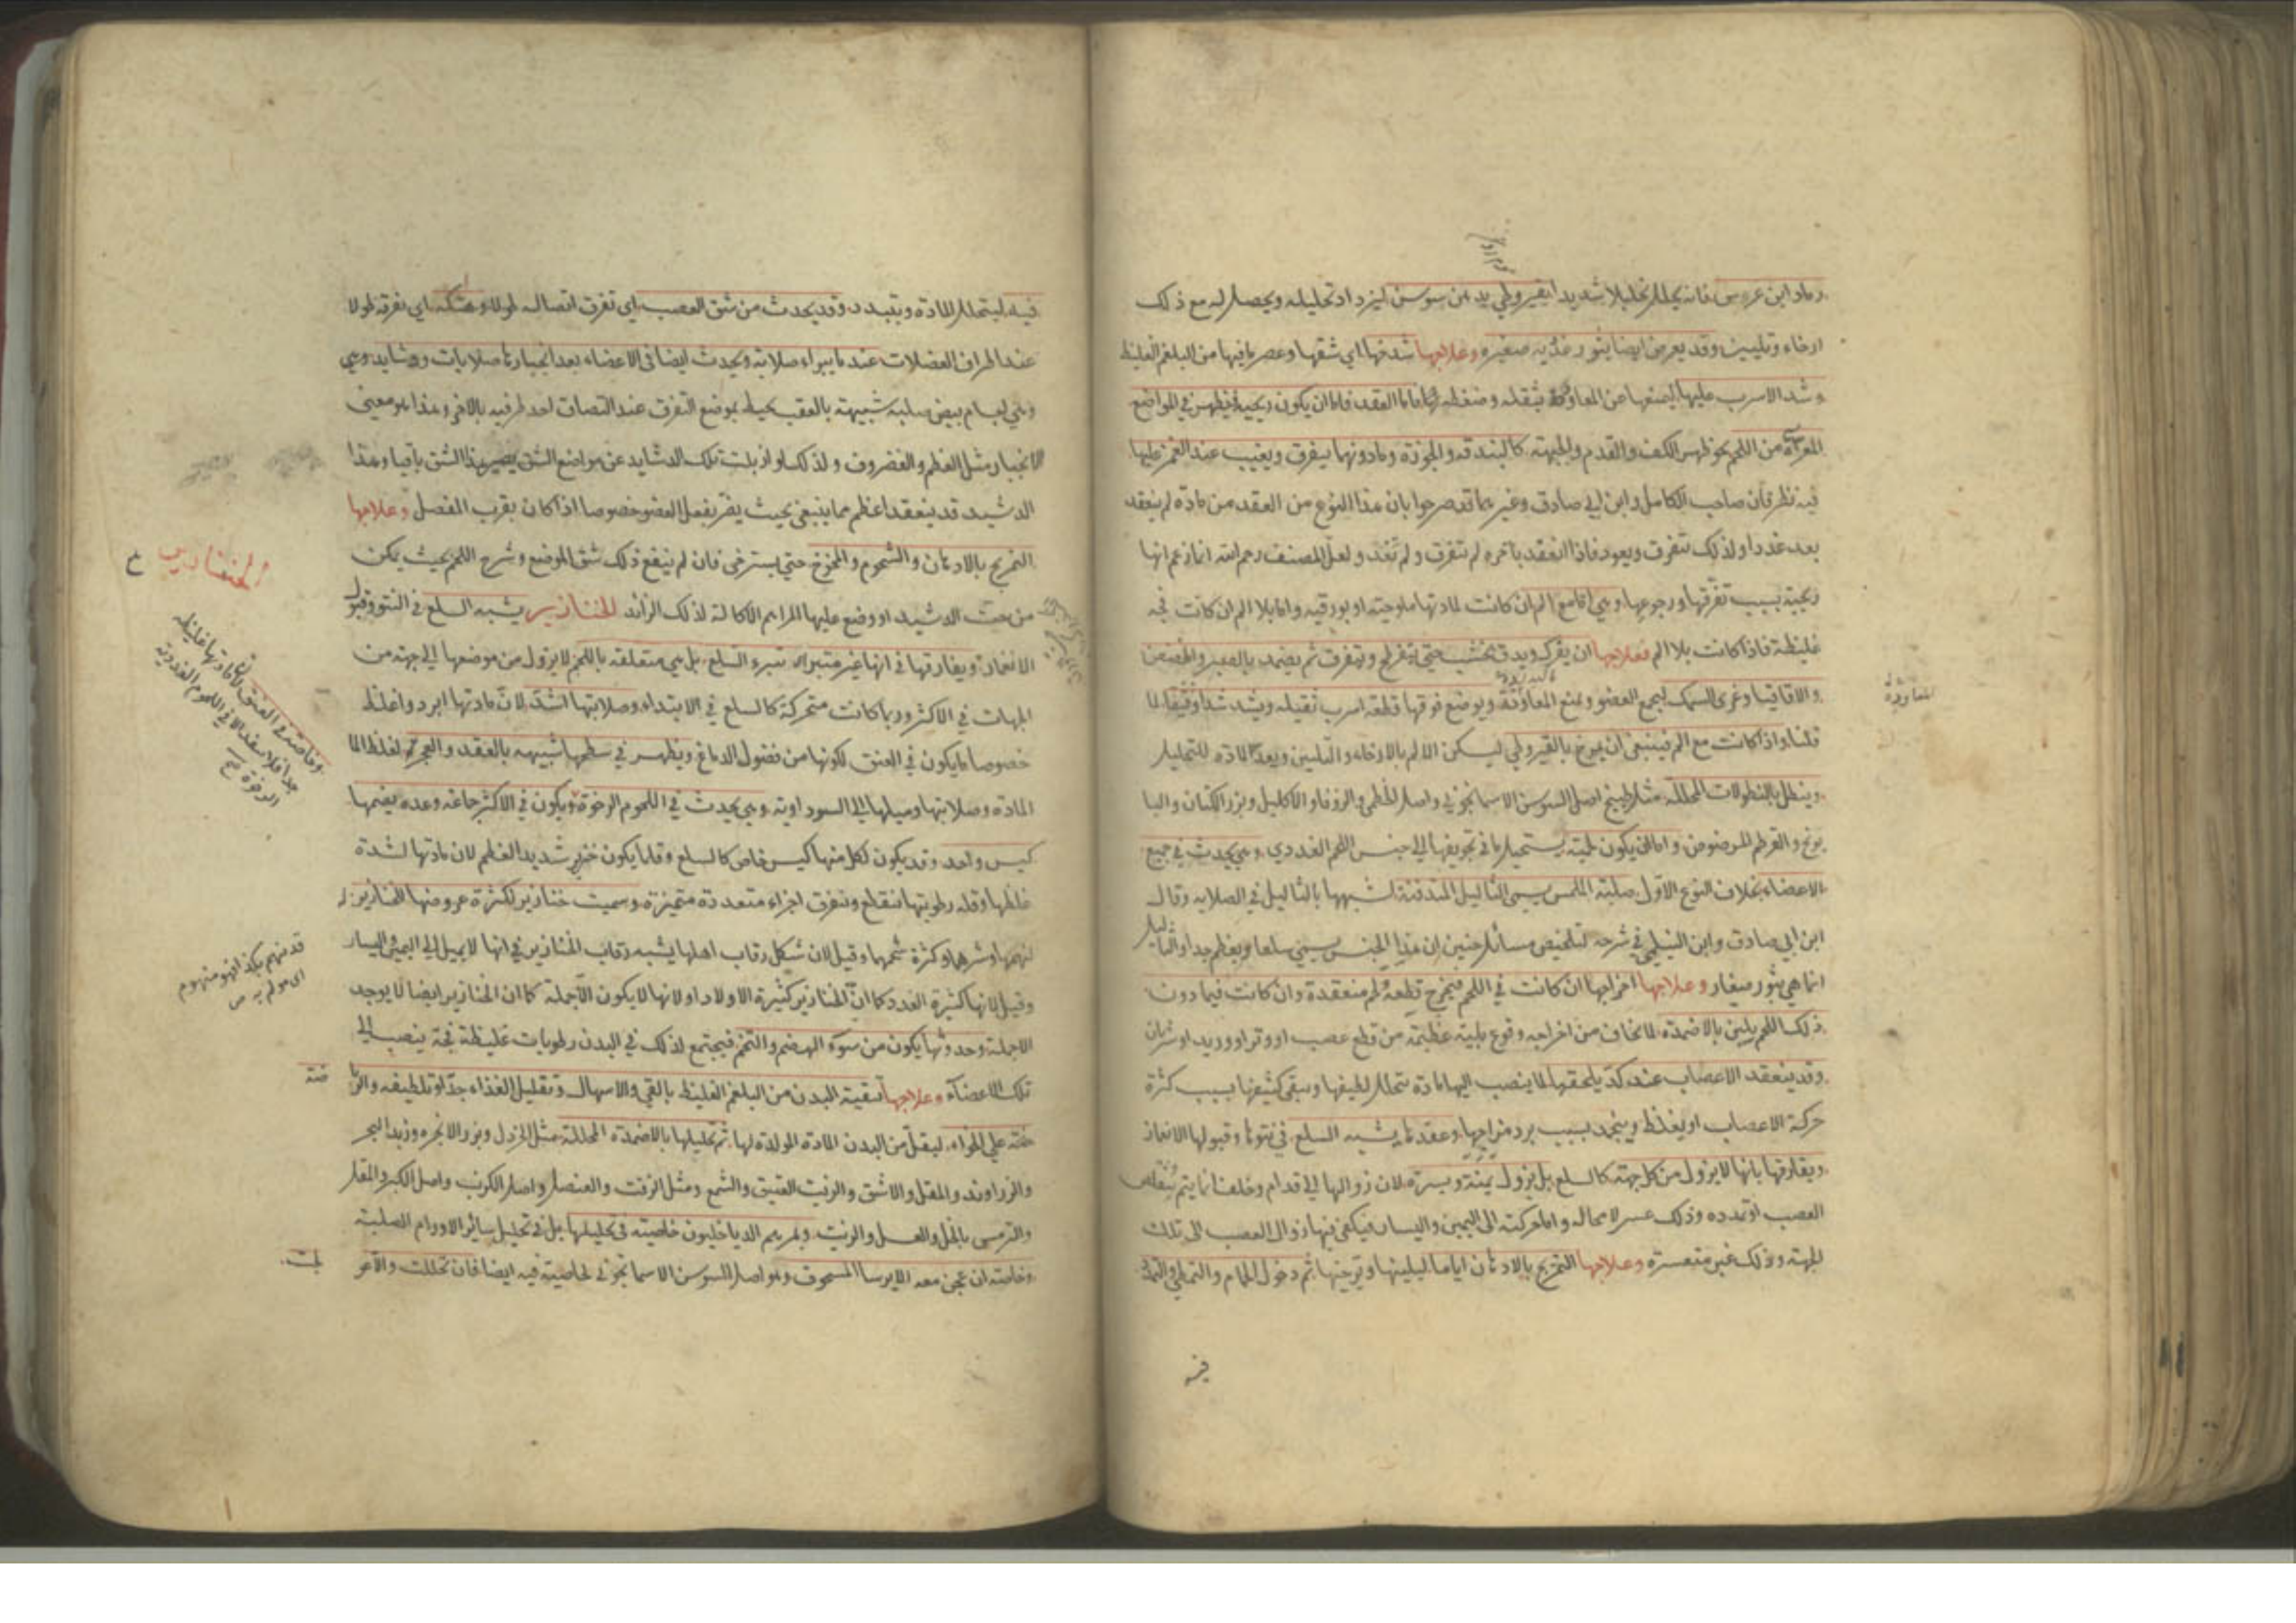 ورماد ابن عرس فانه يحلل تحليلا شديدا بقيروطي بدهن سوسن ليزداد تحليله ويحصل له مع ذلك
ارخاء وتليين وقد يعرض ايضا بثور غدّيه صغيره وعلاجها شدخها اي شقها وعصر ما فيها من البلغم الغليظ
وشد الاسرب عليها ليمنعها عن المعاودة بثقله وضغطه لها فاما العقد فاما ان يكون ريحية فيظهر في المواضع
المعراة من اللحم نحو ظهر الكف والقدم والجبهة كالبندقه والجوزة وما دونهما يتفرق ويغيب عند الغمز عليها
فيه نظر فان صاحب الكامل وابن ابي صادق وغيرهما قد صرحوا بان هذا النوع من العقد من مادة لم ينعقد
بعد غددا ولذلك تتفرق ويعود فاذا انعقد بآخره لم تتفرق ولم تعد ولعل المصنف رحمه الله انما زعم انها
ريحية بسبب تفرقها ورجوعها وهي اما مع الم ان كانت لمادتها ملوحته او بورقيه واما بلا الم ان كانت فجه
غليظة فاذا كانت بلا الم فعلاجها ان يفرك ويدق بخشب حتى يتفرطح وتتفرق ثم يضمد بالصبر والحضض
والاقاقيا وغرى السمك ليجمع العضو ويمنع المعاودة ويوضع فوقها قطعة اسرب ثقيله ويشد شدا وثيقا لما
قلنا واذا كانت مع الم فينبغي ان يمرخ بالقيروطي ليسكن الالم بالارخاء والتليين ويعد المادة للتحليل
وينطل بالنطولات المحلله مثل طبيخ اصل السوسن الاسمانجوني واصل الخطمي والزوفا والاكليل وبزر الكتان والبا
بونج والقرطم المرضوض واما ان يكون لحمية يستحيل ما في تجويفها الى جنس اللحم الغددي وهي يحدث في جميع
الاعضاء بخلاف النوع الاول صلبة الملمس يسمى الثاليل المتدفنة لشبهها بالثاليل في الصلابه وقال
ابن ابي صادق وابن النيلي في شرحه لتلخيص مسائل حنين ان هذا الجنس يسمى سلعا ويعظم جدا والثاليل
انما هي بثور صغار وعلاجها اخراجها ان كانت في اللحم فيخرج قطعة لحم منعقدة وان كانت فيما دون
ذلك اللحم يلين بالاضمدة لما يخاف من اخراجه وقوع بلية عظيمة من قطع عصب او وتر او وريد او شريان
وقد ينعقد الاعصاب عند كدّ يلحقها لما ينصب اليها مادة يتحلل لطيفها ويبقى كثيفها بسبب كثرة
حركة الاعصاب او يغلظ وينجمد بسبب برد مزاجها وعقدها يشبه السلع في نتوها وقبولها الانغماز
ويفارقها بانها لا يزول من كل جهة كالسلع بل يزول يمنة ويسرة لان زوالها الى قدام وخلف انما يتم بتقلص
العصب او تمدده وذلك عسر لا محاله واما حركته الى اليمين واليسار فيكفي فيها زوال العصب الى تلك
الجهة وذلك غير متعسرة وعلاجها التمريخ بالادهان اياما ليلينها ويرخيها ثم دخول الحمام والتمطي والتمدد
المعاودة
فيه ليتحلل المادة ويتبدد وقد يحدث من شق العصب اي تفرق اتصاله طولا وهتكه اي تفرقه طولا
عند اطراف العضلات عند ما يبراء صلابة ويحدث ايضا في الاعضاء بعد انجبارها صلابات ودشابد وهي
وهي لحام بيض صلبه شبيهة بالعقب يحيط بموضع التفرق عند التصاق احد طرفيه بالاخر وهذا هو معنى
الانجبار مثل العظم والغضروف ولذلك لو ازيلت تلك الدشابد عن مواضع الشق يصير هذا الشق باقيا وهذا
الدشبد قد ينعقد اعظم مما ينبغي بحيث يضر بفعل العضو خصوصا اذا كان بقرب المفصل وعلاجها
التمريخ بالادهان والشحوم والمخوخ حتى يسترخى فان لم ينفع ذلك شق الموضع وشرح اللحم بحيث يمكن
من نحت الدشبد او وضع عليها المراهم الاكالة لذلك الزائد الخنازير يشبه السلع في النتو وقبول
الانغماز ويفارقها في انها غير متبرئة تبرء السلع بل هي متعلقه باللحم لا يزول من موضعها الى جهة من
الجهات في الاكثر وربما كانت متحركة كالسلع في الابتداء وصلابتها اشد لان مادتها ابرد واغلظ
خصوصا ما يكون في العنق لكونها من فضول الدماغ ويظهر في سطحها شبيهه بالعقد والعجر لغلظ
المادة وصلابتها وميلها الى السوداوية وهي يحدث في اللحوم الرخوة ويكون في الاكثر جماعة وعده يضمها
كيس واحد وقد يكون لكل منها كيس خاص كالسلع وقلما يكون خنزير شديد العظم لان مادتها لشدة
غلظها وقله رطوبتها تتقطع وتتفرق اجزاء متعددة متميزة وسميت خنازير لكثرة عروضها للخنازير
لنهمها وشرهها وكثرة شحمها وقيل لان شكل رقاب اهلها يشبه رقاب الخنازير في انها لا يميل الى اليمين واليسار
وقيل لانها كثيرة العدد كما ان الخنازير كثيرة الاولاد او لانها لا يكون الا جملة كما ان الخنازير ايضا لا يوجد
الا جملة وحدوثها يكون من سوء الهضم والتخم فيجتمع لذلك في البدن رطوبات غليظة فجة ينصب الى
تلك الاعضاء وعلاجها تنقية البدن من البلغم الغليظ بالقي والاسهال وتقليل الغذاء جدا وتلطيفه والريا
ضة على الخواء ليقل من البدن المادة المولدة لها ثم تحليلها بالاضمدة المحللة مثل الخردل وبزر الانجره وزبد البحر
والزراوند والمقل والاشق والزيت العتيق والشمع ومثل الزفت والعنصل واصل الكرنب واصل الكبر والمقل
والترمس بالخل والعسل والزيت ولمرهم الدياخليون خاصية في تحليلها بل في تحليل سائر الاورام الصلبة
وخاصة ان عجن معه الايرسا المسحوق وهو اصل السوسن الاسمانجوني لخاصية فيه ايضا فان تحللت والا عو
الخنازير
ضة
لجت